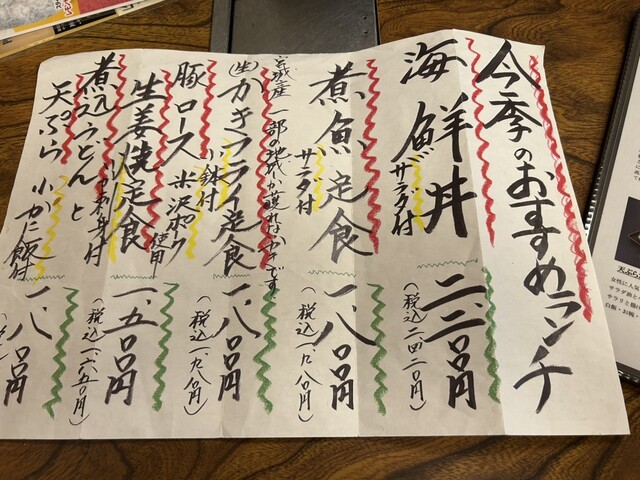 今季のおすすめランチ
海鮮丼 サラダ付
二、二〇〇円
(税込二、四二〇円)
煮魚定食
サラダ付
一、八〇〇円
(税込一、九八〇円)
宮城産 一部の
カキです
(生)かきフライ定食
小鉢付
一、八〇〇円
(税込一、九八〇円)
豚ロース 米沢ポーク使用
生姜焼定食
一、五〇〇円
(税込一、六五〇円)
煮込うどんと
天ぷら 小かに飯付
一、八〇〇円
(税込
天ぷら
女性に人気
白飯・お椀